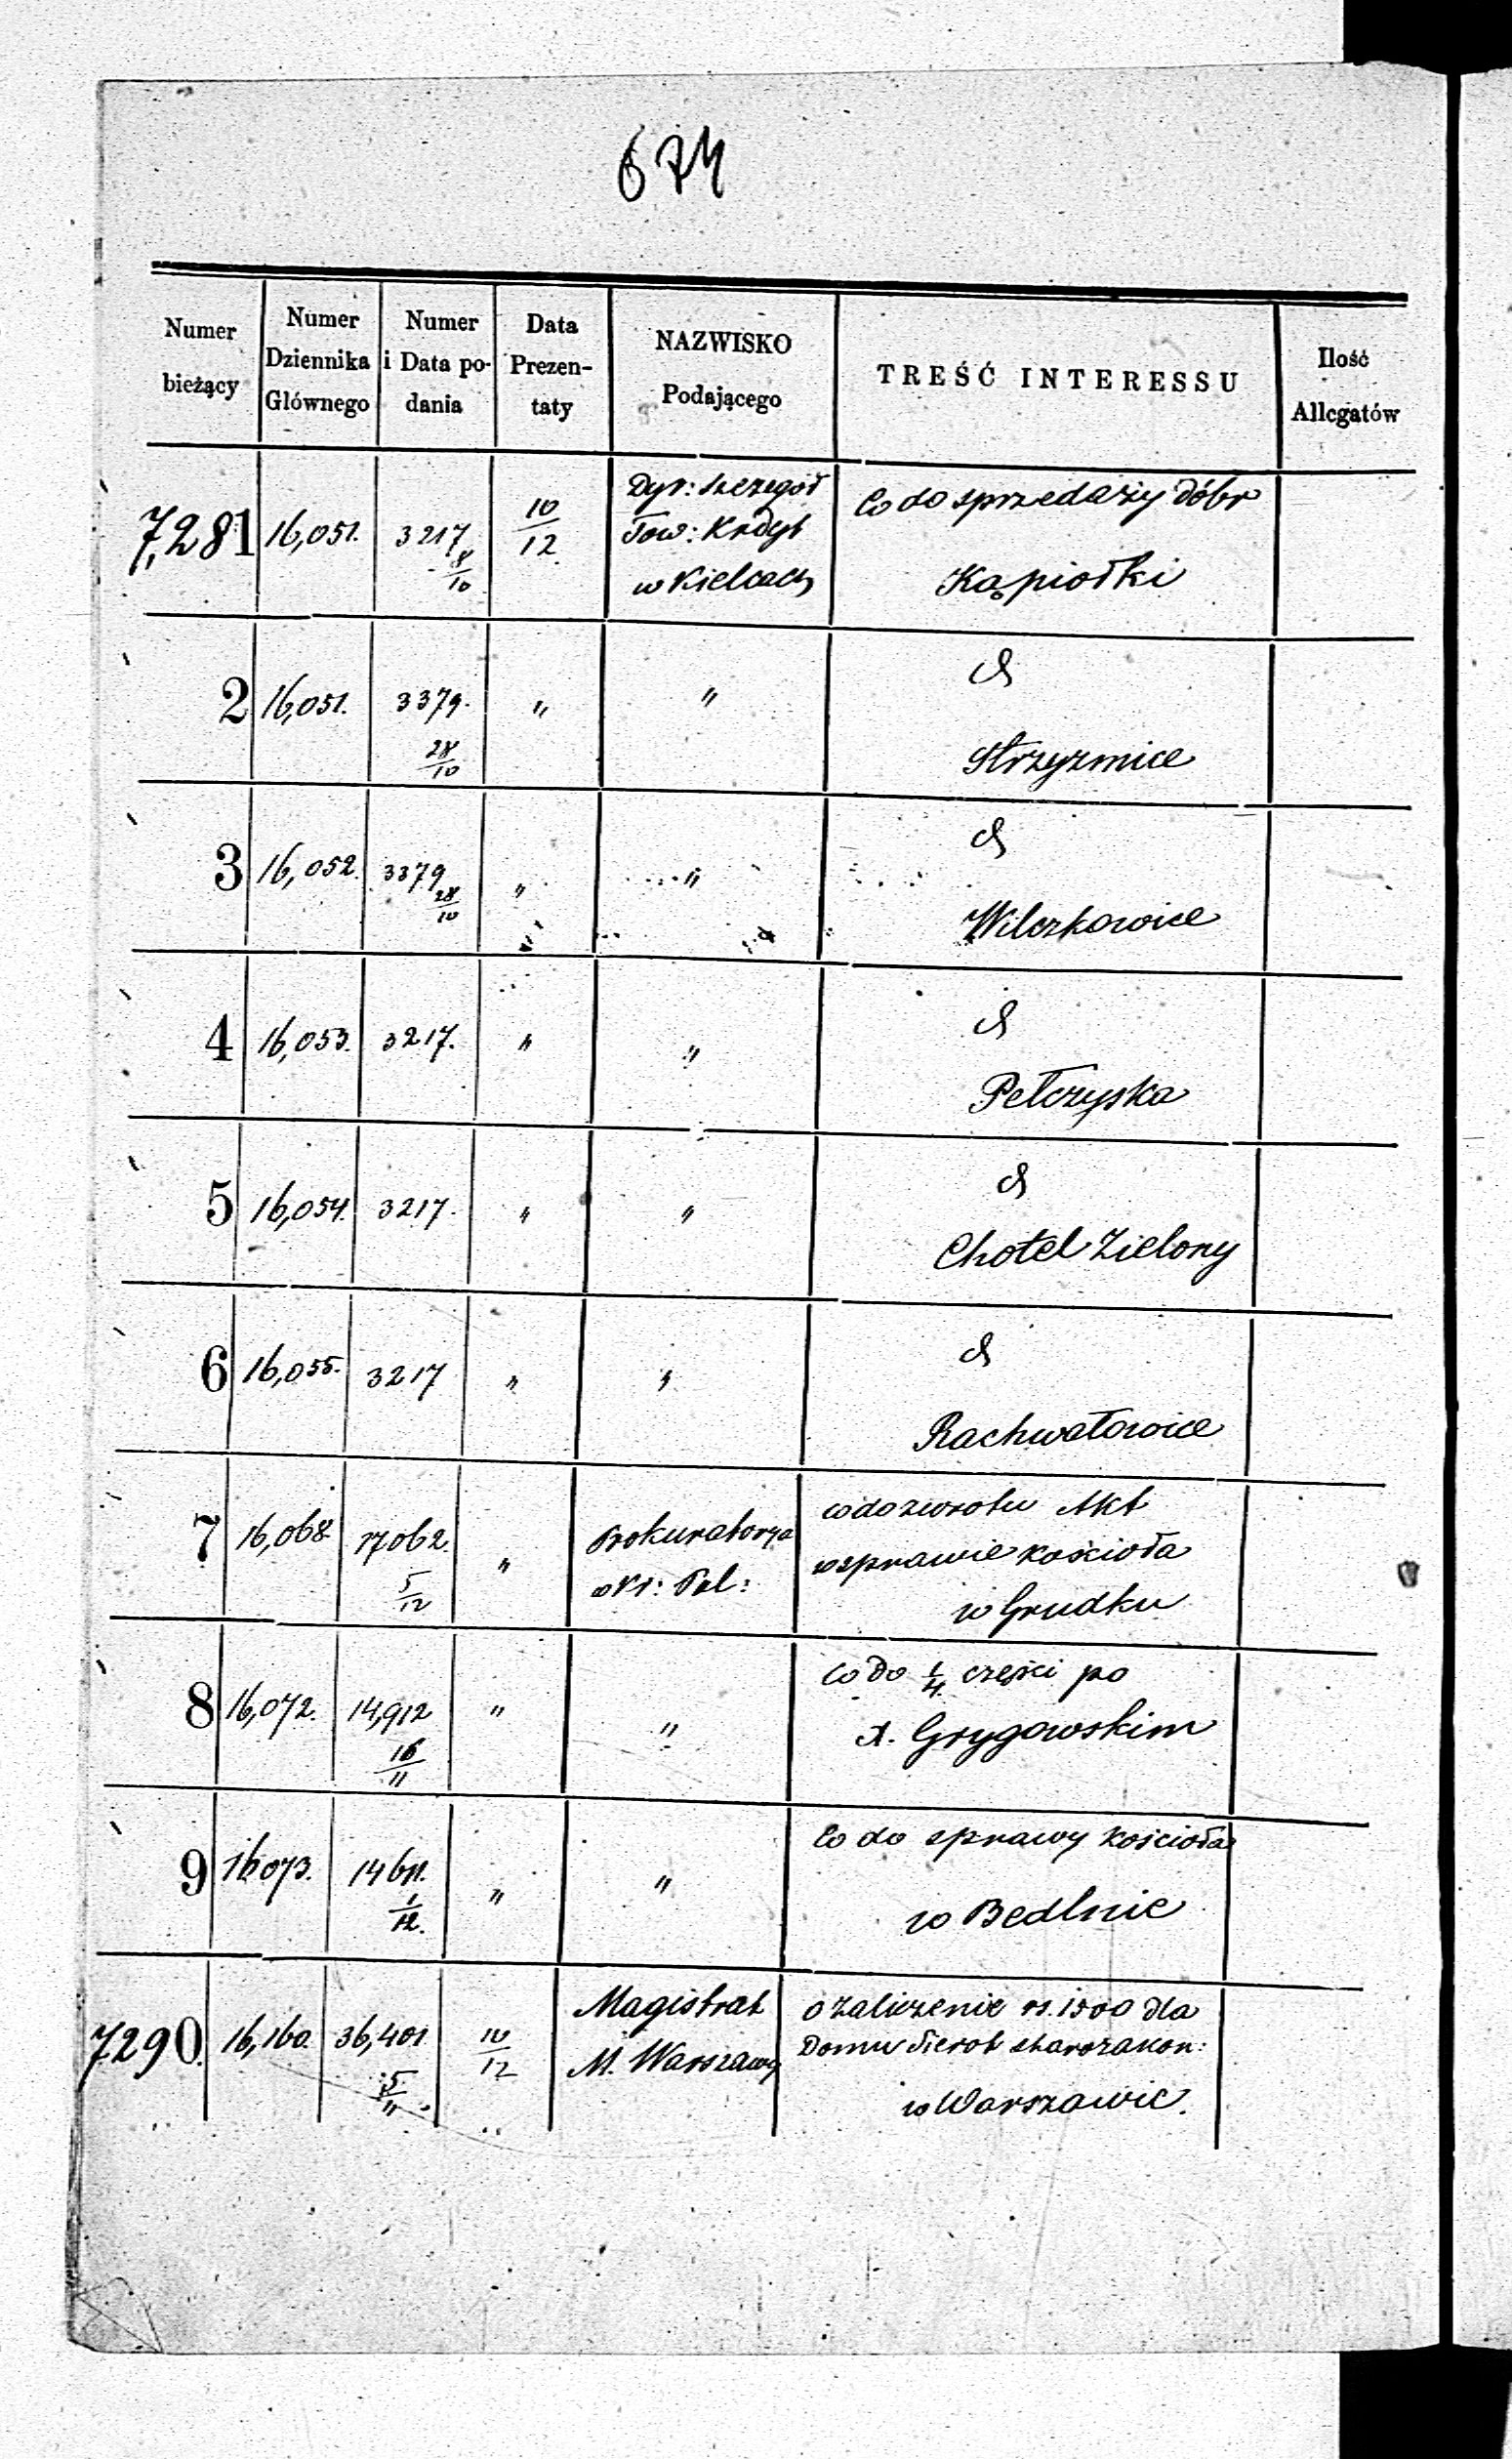 674
Numer bieżący
Numer Dziennika Głównego
Numer i Data podania
Data Prezentaty
NAZWISKO Podającego
TREŚĆ INTERESSU
Ilość Allegatów
7,281 16,051. 3217 8/10 10/12 Dyr: Szczegół Co do sprzedaży dóbr
Tow: Krdyt
w Kielcach Kąpiołki
2 16,051. 3379. 28/10 " " d
Strzyzmice
3 16,052. 3379 28/10 " " d
Wilczkowice
4 16,053. 3217. " " d
Pełczyska
5 16,054. 3217. " " d
Chotel Zielony
6 16,055. 3217 " " d
Rachwałowice
7 16,068 17062. 5/12 " Prokuratorya co do zwrotu Akt
w Kr: Pol: w sprawie kościoła
w Grudku
8 16,072. 14,912 16/11 " " Co do 1/4 części po
X. Grygowskim
9 16073. 14611. 1/12. " " Co do sprawy kościoła
w Bedlnie
7290. 16,160. 36,401 5/11 10/12 Magistrat o zaliczenie rs. 1500 dla
M. Warszawy Domu Sierot starozakon:
w Warszawie.